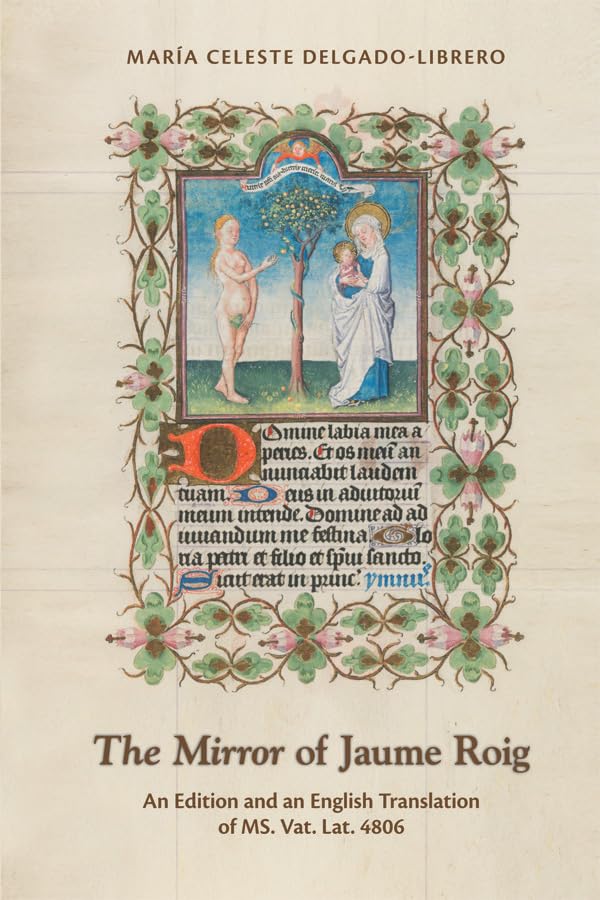 MARÍA CELESTE DELGADO-LIBRERO
Domine labia mea a
peries. Et os meū an
nunciabit laudem
tuam. Deus in adiutoriū
meum intende. Domine ad ad
iuuandum me festina. Glo
ria patri et filio et sp̄ui sancto.
Sicut erat in princ. ymnus.
The Mirror of Jaume Roig
An Edition and an English Translation
of MS. Vat. Lat. 4806